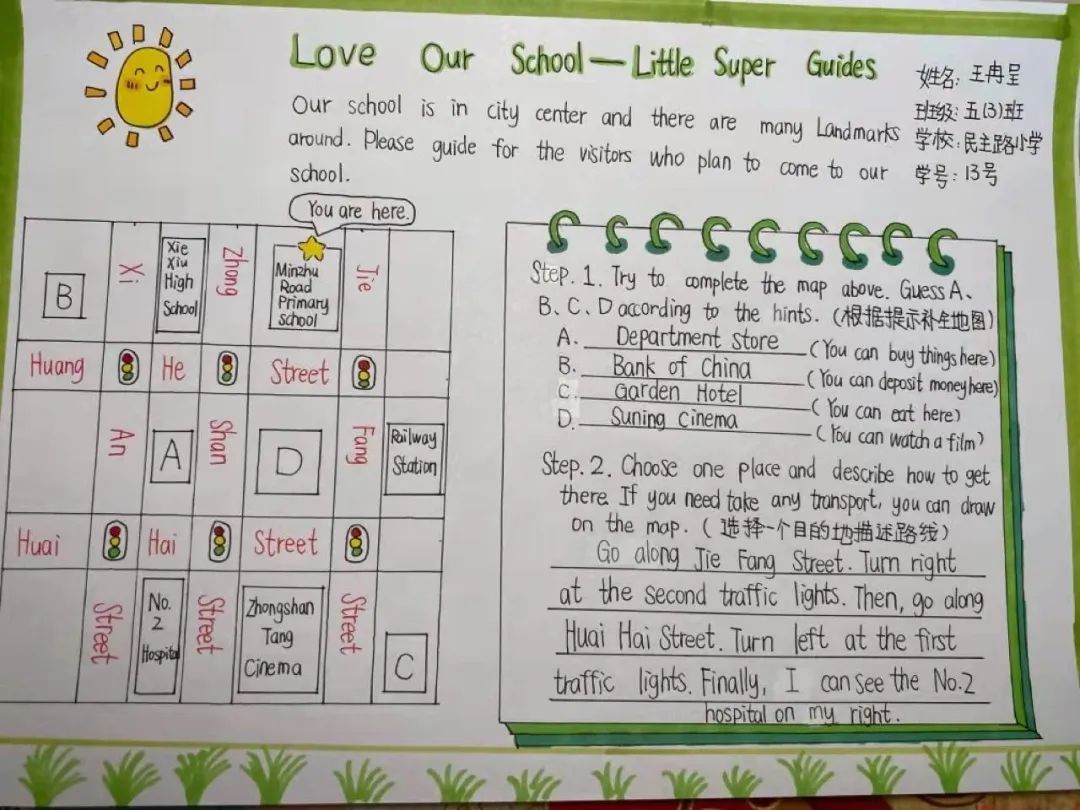 Love Our School—Little Super Guides
姓名: 王冉呈
班级: 五(3)班
学校: 民主路小学
学号: 13号
Our school is in city center and there are many Landmarks
around. Please guide for the visitors who plan to come to our
school.
You are here.
B
Xi
Xie
Xiu
High
School
Zhong
Minzhu
Road
Primary
school
Jie
Huang
He
Street
An
A
Shan
D
Fang
Railway
Station
Huai
Hai
Street
Street
No.
2
Hospital
Street
Zhongshan
Tang
Cinema
Street
C
Step. 1. Try to complete the map above. Guess A、
B、C、D according to the hints. (根据提示补全地图)
A. Department store (You can buy things here)
B. Bank of China (You can deposit money here)
C. Garden Hotel (You can eat here)
D. Suning cinema (You can watch a film)
Step. 2. Choose one place and describe how to get
there. If you need take any transport, you can draw
on the map. (选择一个目的地描述路线)
Go along Jie Fang Street. Turn right
at the second traffic lights. Then, go along
Huai Hai Street. Turn left at the first
traffic lights. Finally, I can see the No.2
hospital on my right.